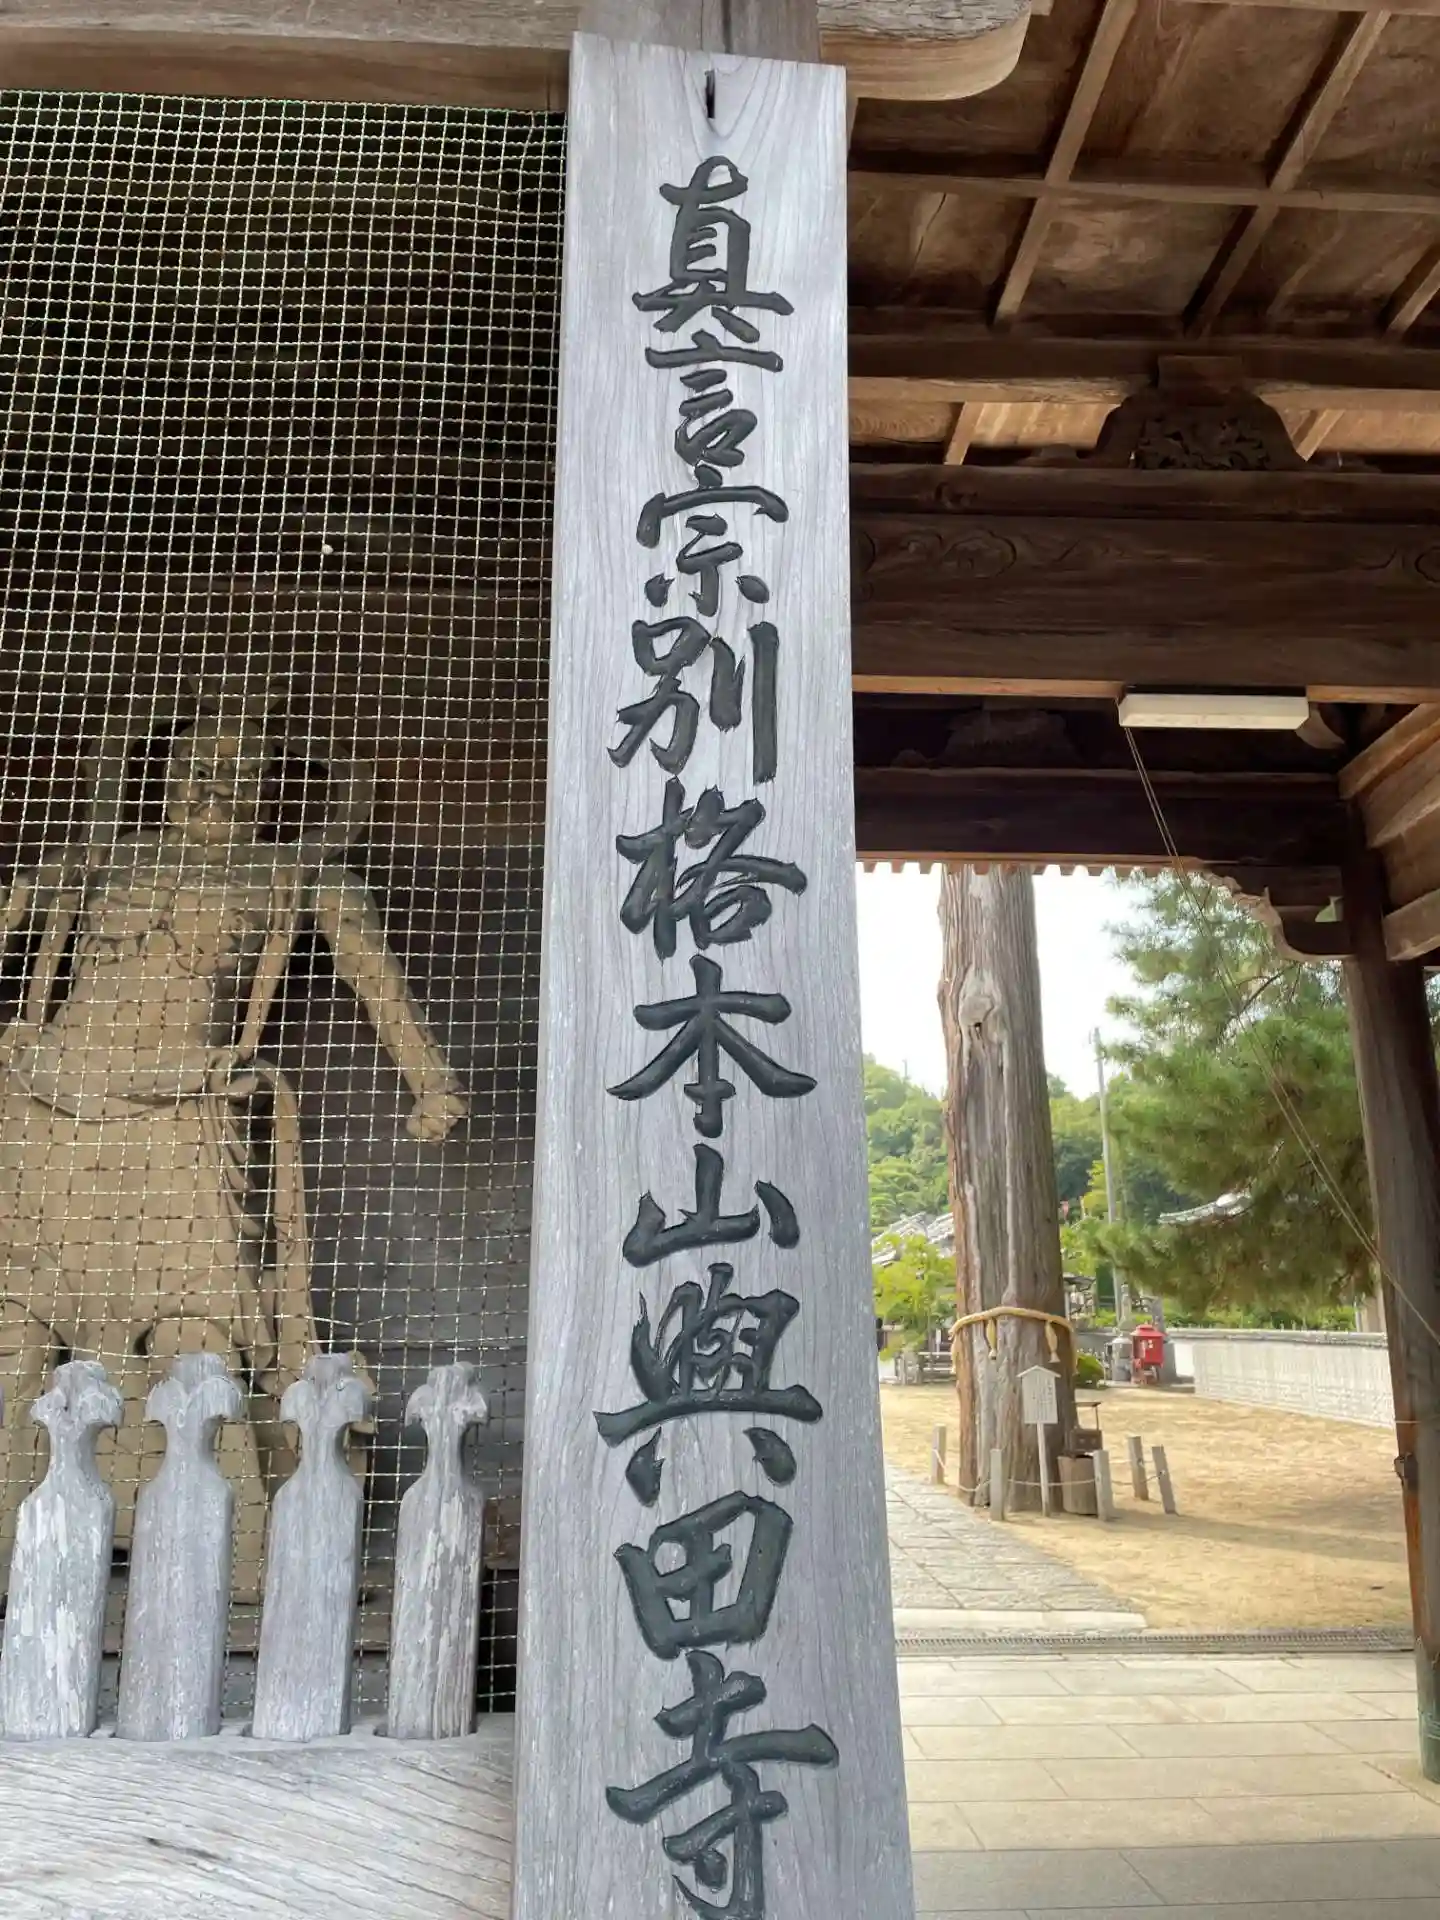 真言宗別格本山興田寺